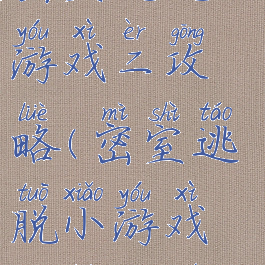 yóu xì èr gōng
游戏二攻
lüè mì shì táo
略(密室逃
tuō xiǎo yóu xì
脱小游戏